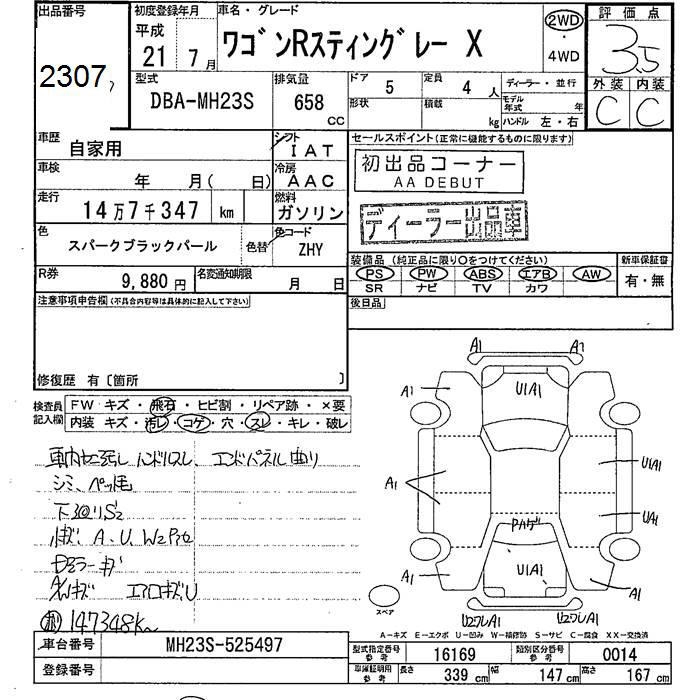 出品番号
2307
初度登録年月
平成
21 7月
車名・グレード
ワゴンRスティングレー X
2WD
・
4WD
評価点
3.5
外装 内装
C C
型式
DBA-MH23S
排気量
658
CC
ドア
5
定員
4 人
ディーラー・並行
形状
積載
kg
モデル年式 年
ハンドル 左・右
車歴
自家用
シフト
IAT
車検
年 月( 日)
冷房
AAC
走行
14万7千347 km
燃料
ガソリン
色
スパークブラックパール
色替
色コード
ZHY
R券
9,880 円
名変通知期限
月 日
セールスポイント(正常に機能するものに限ります)
初出品コーナー
AA DEBUT
ディーラー出品車
装備品 (純正品に限り○をつけてください)
PS PW ABS エアB AW
SR ナビ TV カワ
新車保証書
有・無
後日品
注意事項申告欄(不具合内容等は具体的に記入して下さい)
修復歴 有〔箇所 〕
検査員
記入欄
FW キズ・飛石・ヒビ割・リペア跡・×要
内装 キズ・汚レ・コゲ・穴・スレ・キレ・破レ
車内ヤニ汚レ ハンドルスレ、エンドパネル曲り
シミ、ペット毛
下回りS2
小キズ、A、U、W2
Dミラーキズ
Aルキズ エアロキズU
147348K
A1 A2
A1 U1A1
A1 U1A1
Pハゲ UA1
A1 U1A1 A1
U2ワレA1 U2ワレA1
スペア
A-キズ E-エクボ U-凹み W-補修跡 S-サビ C-腐食 XX-交換済
車台番号
MH23S-525497
登録番号
型式指定番号
参考
16169
類別区分番号
参考
0014
車庫証明用
参考
長さ 339 cm 幅 147 cm 高さ 167 cm